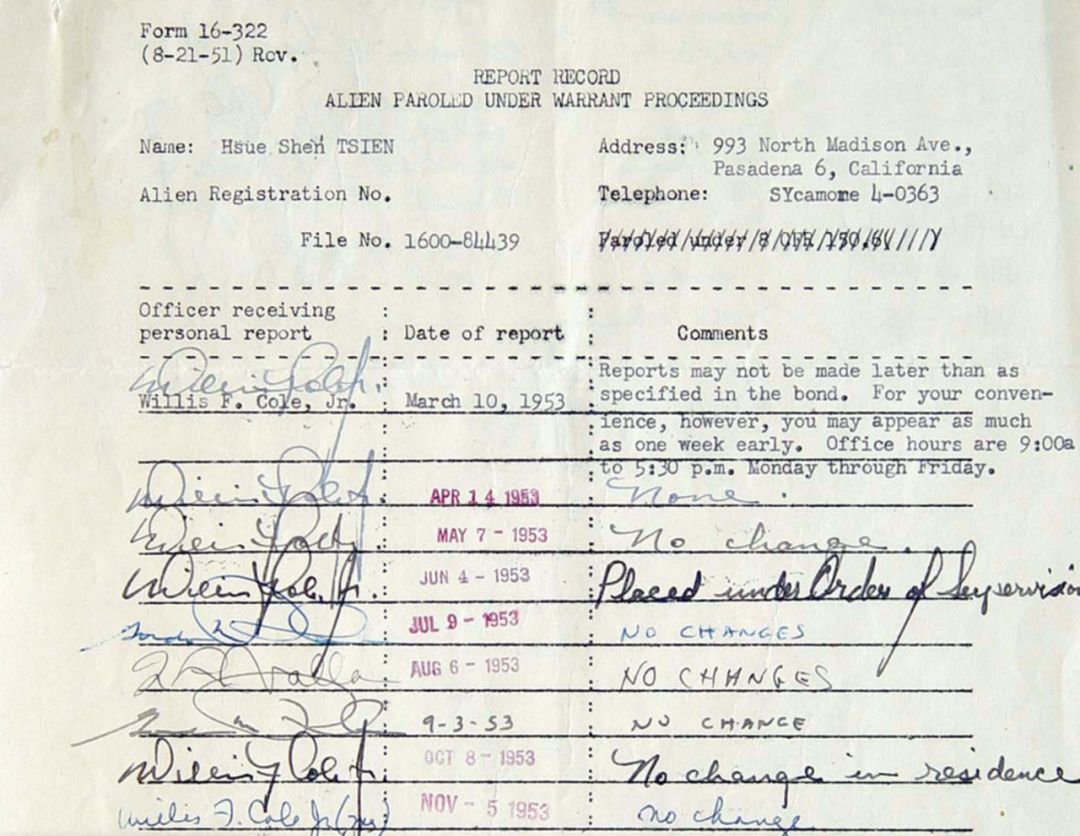 Form 16-322
(8-21-51) Rev.
REPORT RECORD
ALIEN PAROLED UNDER WARRANT PROCEEDINGS
Name: Hsue Shen TSIEN
Address: 993 North Madison Ave.,
Pasadena 6, California
Alien Registration No.
Telephone: SYcamore 4-0363
File No. 1600-84439
Paroled under 8 CFR 150.6
Officer receiving
personal report : Date of report : Comments
Willis F. Cole, Jr.
Willis F. Cole, Jr. : March 10, 1953 :
Reports may not be made later than as
specified in the bond. For your conven-
ience, however, you may appear as much
as one week early. Office hours are 9:00a
to 5:30 p.m. Monday through Friday.
Willis F. Cole Jr. APR 14 1953 None.
Willis F. Cole Jr. MAY 7 - 1953 No change.
Willis F. Cole, Jr. JUN 4 - 1953 Placed under Order of Supervision
JUL 9 - 1953 NO CHANGES
AUG 6 - 1953 NO CHANGES
9-3-53 NO CHANGE
Willis F. Cole Jr. OCT 8 - 1953 No change in residence
Willis F. Cole Jr. NOV - 5 1953 no change